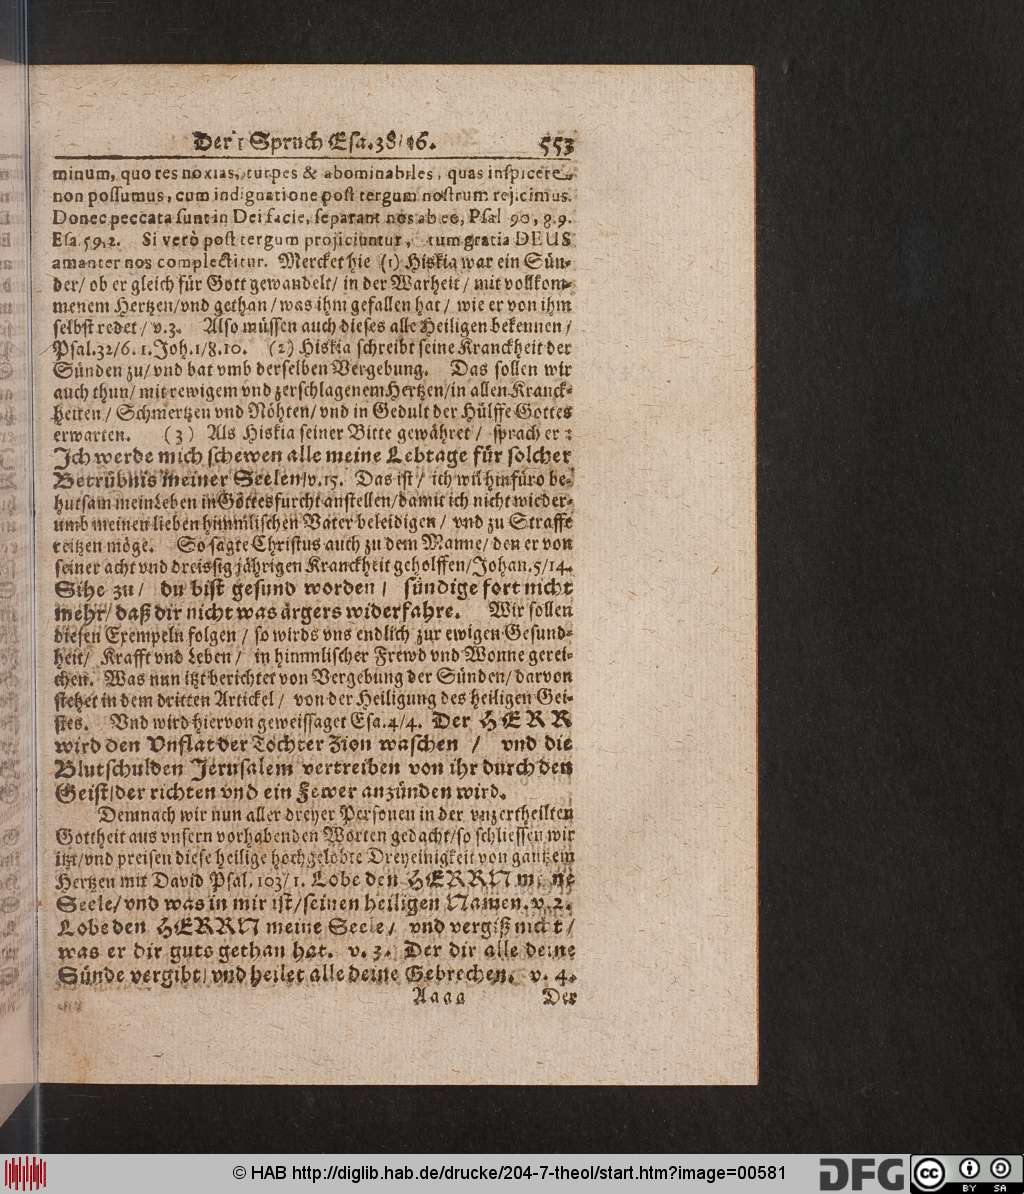 Der Spruch Esa.38/16. 553
minum, quo res noxias, turpes & abominabiles, quas inspicere
non possumus, cum indignatione post tergum nostrum rejicimus.
Donec peccata sunt in Dei facie, separant nos ab eo, Psal 90, 8.9.
Esa.59,2. Si verò post tergum projiciuntur, tum gratia DEUS
amanter nos complectitur. Mercket hie (1) Hiskia war ein Sün-
der/ ob er gleich für Gott gewandelt/ in der Warheit/ mit vollkom-
menem Hertzen/vnd gethan/ was ihm gefallen hat/ wie er von ihm
selbst redet/ v.3. Also müssen auch dieses alle Heiligen bekennen/
Psal.32/6. 1.Joh.1/8.10. (2) Hiskia schreibt seine Kranckheit der
Sünden zu/ vnd bat vmb derselben Vergebung. Das sollen wir
auch thun/ mit rewigem vnd zerschlagenem Hertzen/in allen Kranck-
heiten/ Schmertzen vnd Nöhten/ vnd in Gedult der Hülffe Gottes
erwarten. (3) Als Hiskia seiner Bitte gewähret/ sprach er:
Ich werde mich schewen alle meine Lebtage für solcher
Betrübnis meiner Seelen/v.15. Das ist/ ich wil hinfüro be-
hutsam mein Leben in Gottesfurcht anstellen/damit ich nicht wieder-
umb meinen lieben himmlischen Vater beleidigen/ vnd zu Straffe
reitzen möge. So sagte Christus auch zu dem Manne/ den er von
seiner acht vnd dreissig jährigen Kranckheit geholffen/Johan.5/14.
Sihe zu/ du bist gesund worden/ sündige fort nicht
mehr/ daß dir nicht was ärgers widerfahre. Wir sollen
diesen Exempeln folgen/ so wirds vns endlich zur ewigen Gesund-
heit/ Krafft vnd Leben/ in himmlischer Frewd vnd Wonne gerei-
chen. Was nun itzt berichtet von Vergebung der Sünden/ darvon
stehet in dem dritten Artickel/ von der Heiligung des heiligen Gei-
stes. Vnd wird hiervon geweissaget Esa.4/4. Der HERR
wird den Vnflat der Töchter Zion waschen / vnd die
Blutschulden Jerusalem vertreiben von ihr durch den
Geist/der richten vnd ein Fewer anzünden wird.
Demnach wir nun aller dreyer Personen in der vnzertheilten
Gottheit aus vnsern vorhabenden Worten gedacht/so schliessen wir
itzt/vnd preisen diese heilige hochgelobte Dreyeinigkeit von gantzem
Hertzen mit David Psal.103/1. Lobe den HERRN meine
Seele/ vnd was in mir ist/seinen heiligen Namen. v.2.
Lobe den HERRN meine Seele/ vnd vergiß nicht/
was er dir guts gethan hat. v. 3. Der dir alle deine
Sünde vergibt/ vnd heilet alle deine Gebrechen. v. 4.
Aaaa Der
© HAB http://diglib.hab.de/drucke/204-7-theol/start.htm?image=00581
DFG
cc BY SA